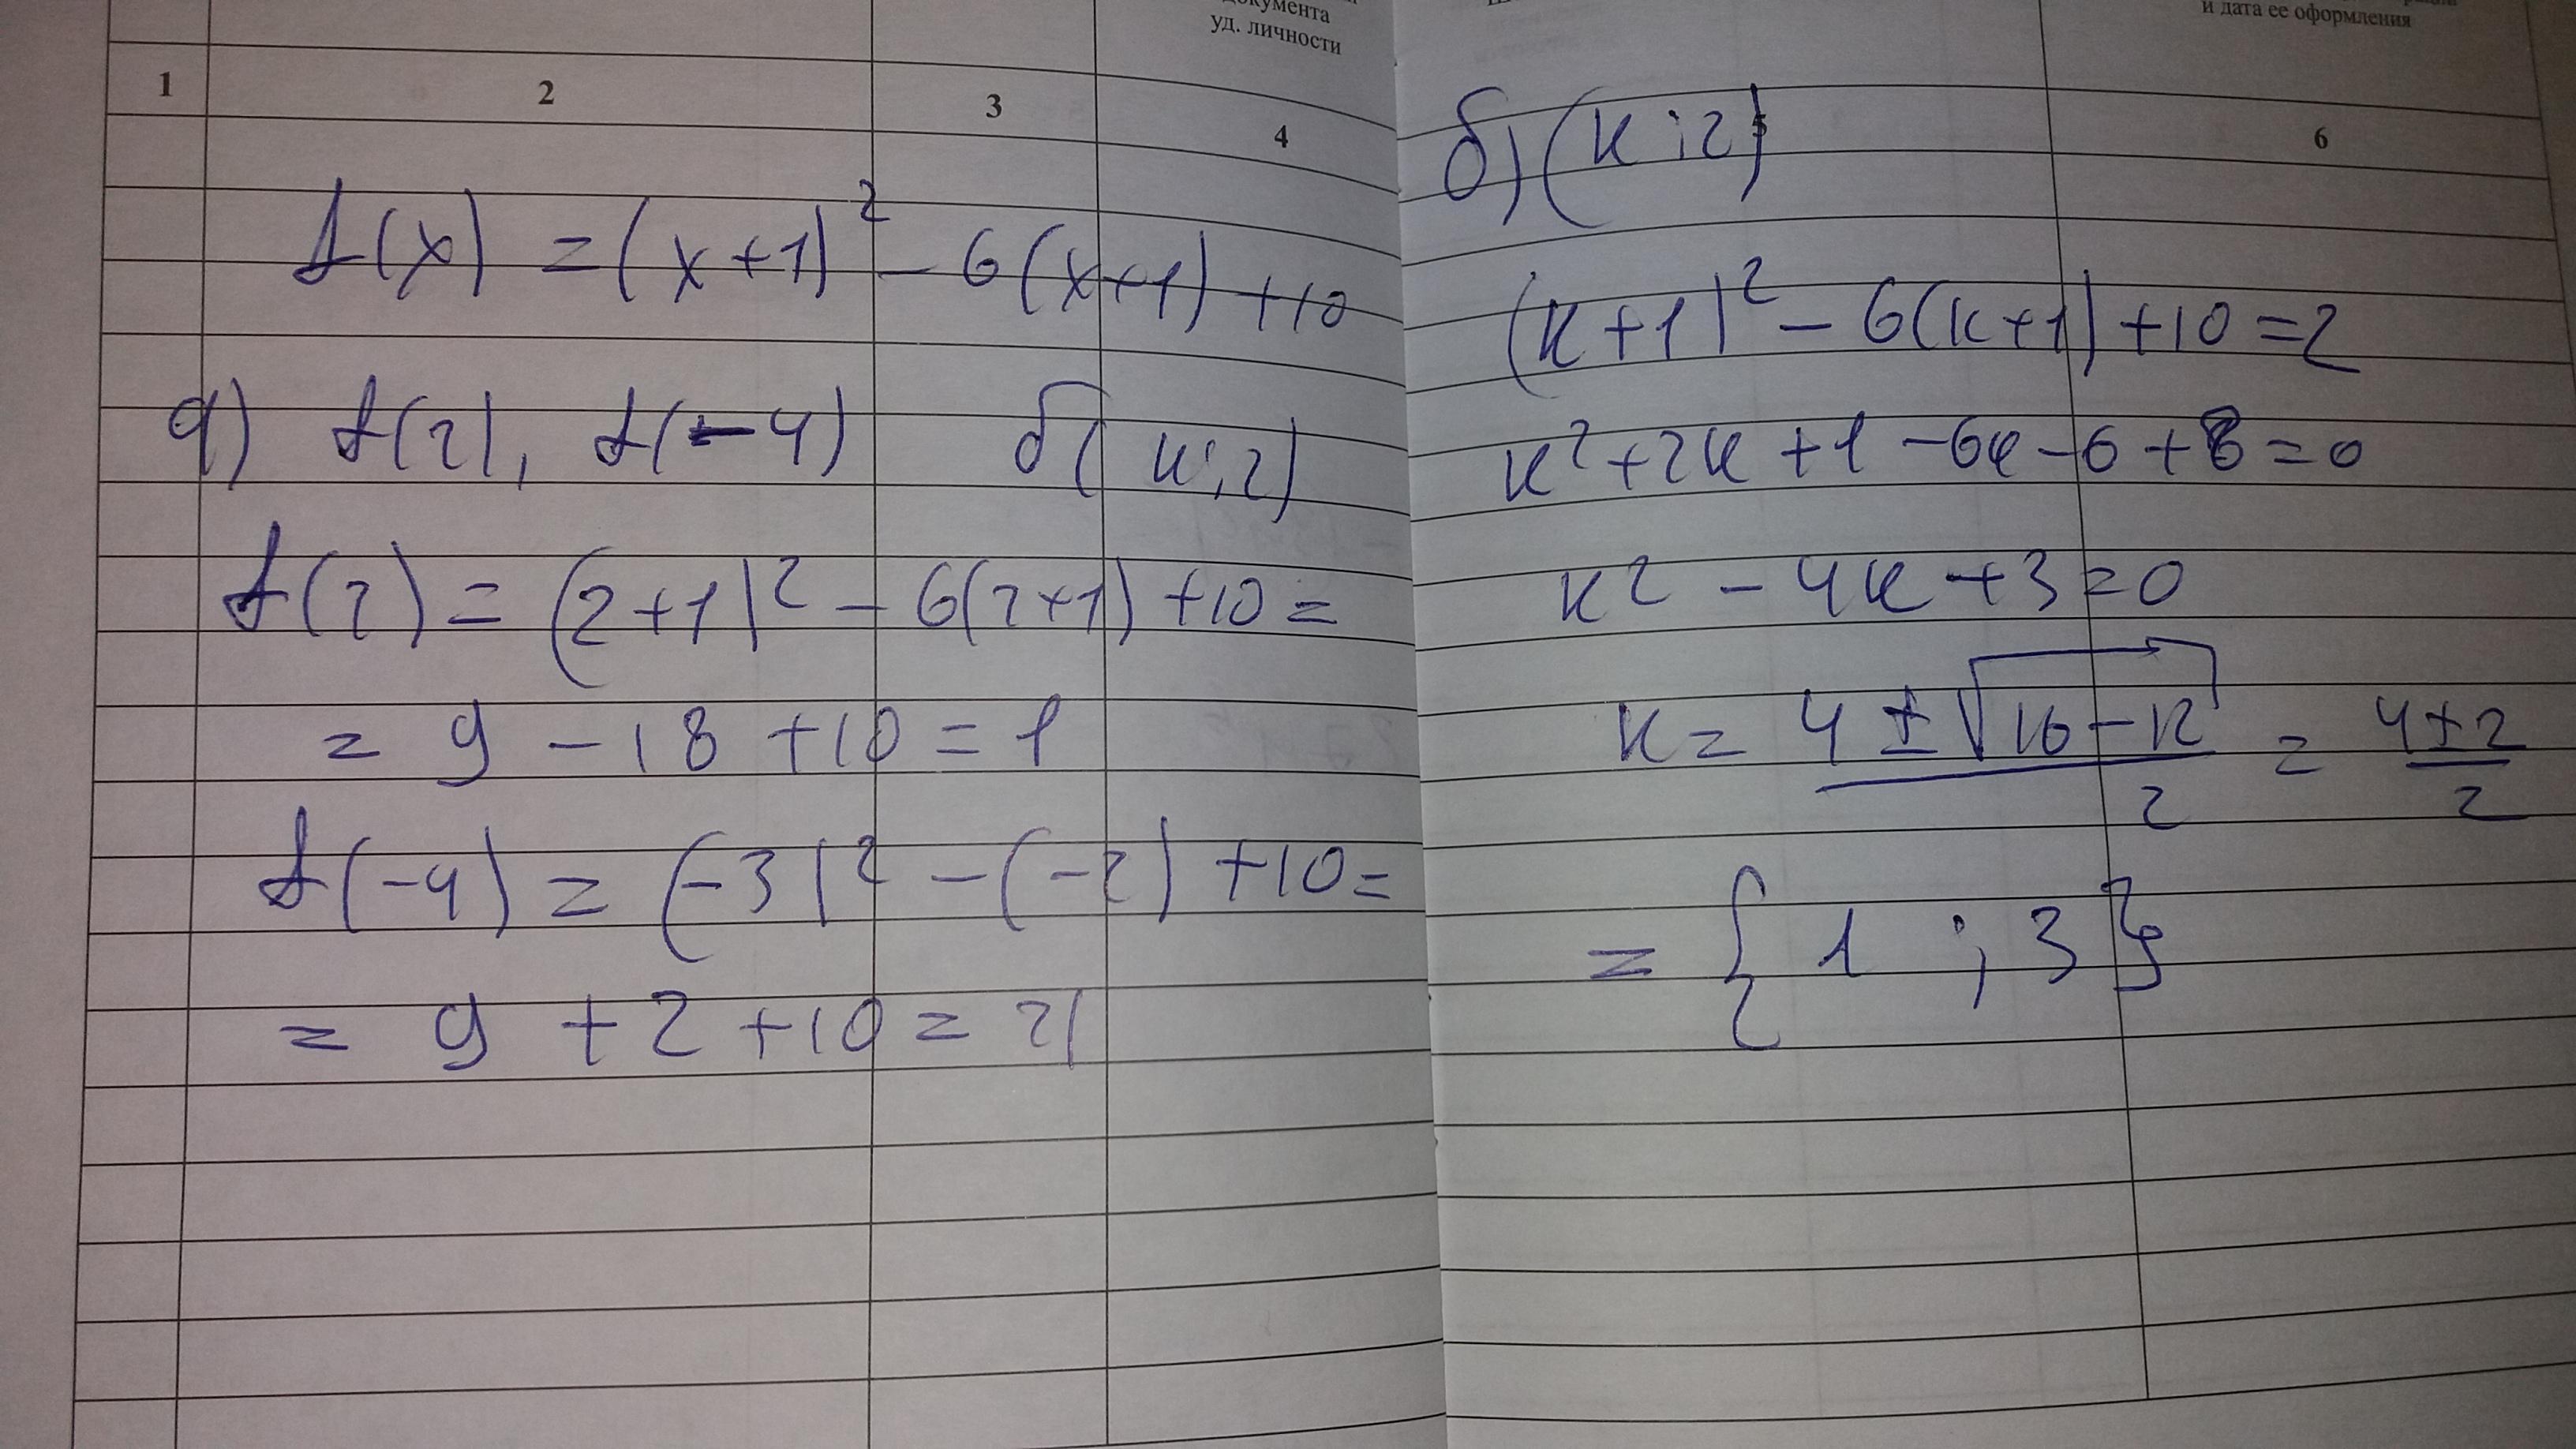 документа
уд. личности
1 2 3 4
f(x) = (x+1)² - 6(x+1) + 10
а) f(2), f(-4) б( к;2)
f(2) = (2+1)² - 6(2+1) + 10 =
= 9 - 18 + 10 = 1
f(-4) = (-3)² - (-2) + 10 =
= 9 + 2 + 10 = 21
и дата ее оформления
5 6
б) (к;2)
(к+1)² - 6(к+1) + 10 = 2
к² + 2к + 1 - 6к - 6 + 8 = 0
к² - 4к + 3 = 0
к = (4 ± √(16 - 12))/2 = (4 ± 2)/2
= { 1 ; 3 }